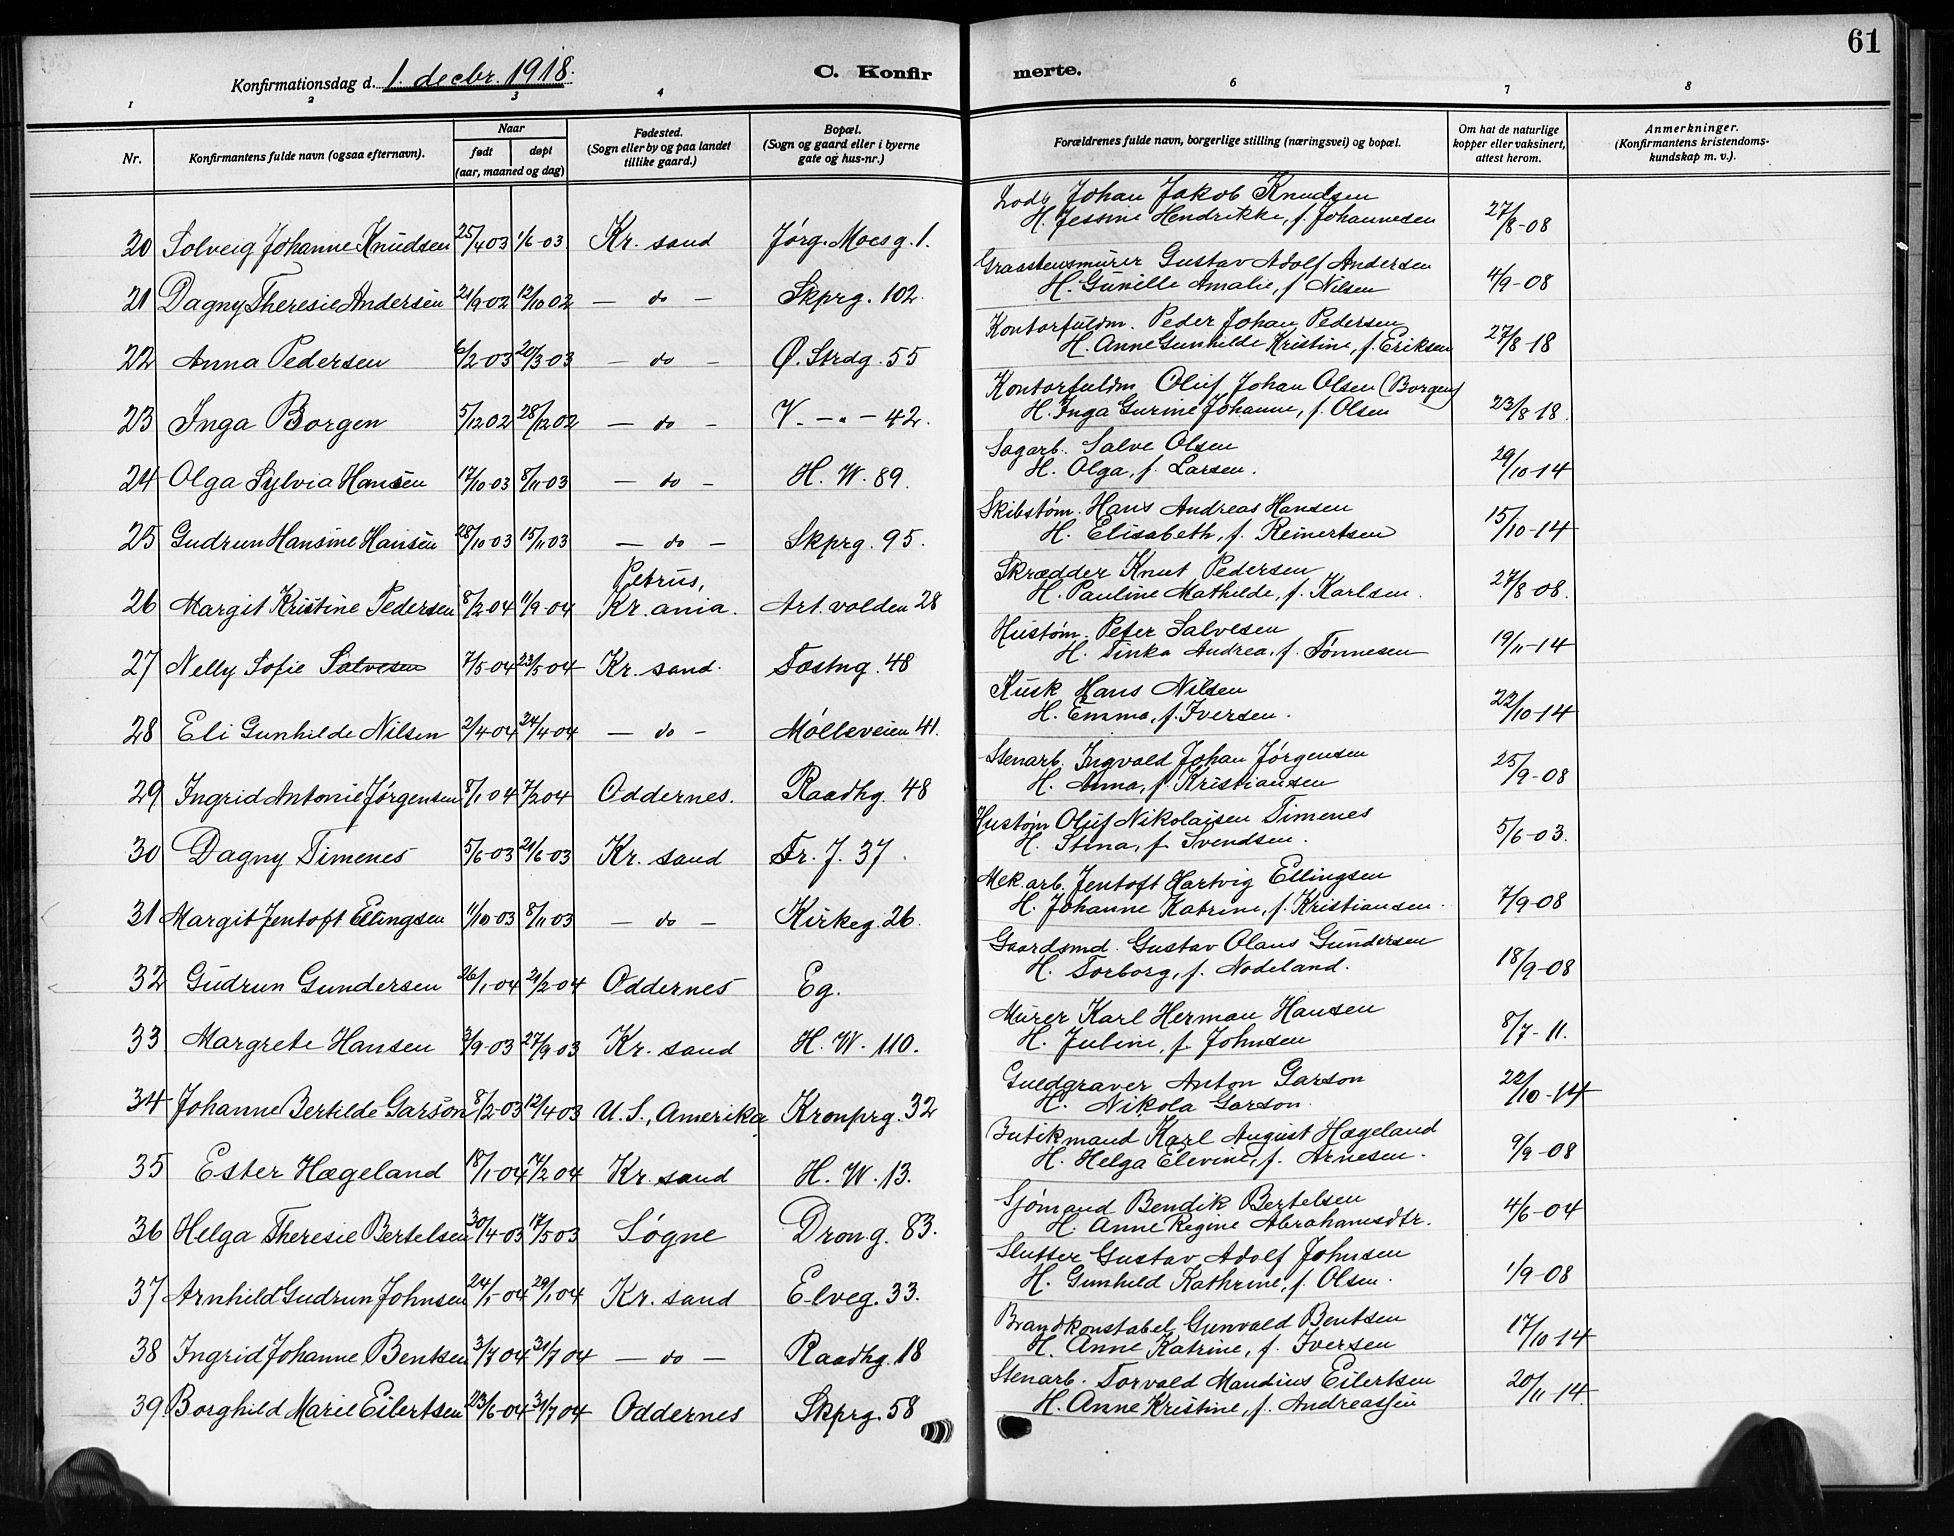 61
Konfirmationsdag d. 1. decbr. 1918.
C. Konfir merte.
1 2 3 4 6 7 8
Nr. Konfirmantens fulde navn (ogsaa efternavn). Naar født døpt (aar, maaned og dag) Fødested. (Sogn eller by og paa landet tillike gaard.) Bopæl. (Sogn og gaard eller i byerne gate og hus-nr.) Forældrenes fulde navn, borgerlige stilling (næringsvei) og bopæl. Om hat de naturlige kopper eller vaksinert, attest herom. Anmerkninger. (Konfirmantens kristendoms-kundskap m. v.).
20 Solveig Johanne Knudsen 25/4 03 1/6-03. Kr. sand Jørg. Moesg. 1. Lods Johan Jakob Knudsen 27/8-08
H. Jessine Hendrikke, f. Johannesen
21 Dagny Theresie Andersen 21/9 02 12/10 02 — do — Skprg. 102. Graastensmurer Gustav Adolf Andersen 4/9-08
H. Gunille Amalie, f. Nilsen
22 Anna Pedersen 6/2-03 20/3-03 — do — Ø. Strdg. 55 Kontorfuldm. Peder Johan Pedersen 27/8-18
H. Anne Gunhilde Kristine, f. Eriksen
23 Inga Borgen 5/12 02 28/12 02 — do — V. — „ — 42. Kontorfuldm Oluf Johan Olsen (Borgen) 23/8-18.
H. Inga Gurine Johanne, f. Olsen
24 Olga Sylvia Hansen 17/10-03 8/11-03 — do — H. W. 89. Sagarb. Salve Olsen 29/10-14
H. Olga, f. Larsen.
25 Gudrun Hansine Hansen 28/10-03 15/11 03 — do — Skprg. 95. Skibstøm. Hans Andreas Hansen 15/10-14
H. Elisabeth, f. Reinertsen
26 Margit Kristine Pedersen 8/2-04 11/9-04 Petrus, Kr. ania. Art. volden 28 Skrædder Knut Pedersen 27/8-08.
H. Pauline Mathilde, f. Karlsen.
27 Nelly Sofie Salvesen 7/5-04 23/5-04 Kr. sand. Fæstng. 48 Hustøm. Peter Salvesen 19/11-14
H. Tinka Andrea, f. Tønnesen
28 Eli Gunhilde Nilsen 2/4-04 24/4-04 — do — Mølleveien 41. Kusk Hans Nilsen 22/10-14
H. Emma, f. Iversen.
29 Ingrid Antonie Jørgensen 8/1 04 7/2 04 Oddernes. Raadhg. 48 Stenarb. Ingvald Johan Jørgensen 25/9-08
H. Anna, f. Kristiansen
30 Dagny Timenes 5/6-03 21/6-03 Kr. sand Tr. J. 37. Hustøm Oluf Nikolaisen Timenes 5/6-03.
H. Stina, f. Svendsen.
31 Margit Jentoft Ellingsen 11/10-03 8/11 03 — do — Kirkeg. 26. Mek. arb. Jentoft Hartvig Ellingsen 7/9-08
H. Johanne Katrine, f. Kristiansen.
32 Gudrun Gundersen 26/1-04 21/2-04 Oddernes Eg. Gaardsmd. Gustav Olaus Gundersen 18/9-08
H. Torborg, f. Nodeland.
33 Margrete Hansen 3/9-03 27/9 03 Kr. sand H. W. 110. Murer Karl Herman Hansen 8/7-11.
H. Juline, f. Johnsen
34 Johanne Bertilde Garson 8/2-03 12/4 03 U. S., Amerika Kronprg. 32 Guldgraver Anton Garson 22/10-14
H. Nikola Garson.
35 Ester Hægeland 18/1-04 14/2 04 Kr. sand H. W. 13. Butikmand Karl August Hægeland 9/9-08
H. Helga Elevine, f. Arnesen.
36 Helga Theresie Bertelsen 30/4-03 17/5 03 Søgne Drong. 83. Sjømand Bendik Bertelsen 4/6-04
H. Anne Regine Abrahamsdtr.
37 Arnhild Gudrun Johnsen 24/1-04 29/1 04 Kr. sand Elveg. 33. Slutter Gustav Adolf Johnsen 1/9-08
H. Gunhild Kathrine, f. Olsen.
38 Ingrid Johanne Bentsen 3/7 04 31/7 04 — do — Raadhg. 18 Brandkonstabel Gunvald Bentsen 17/10-14
H. Anne Katrine, f. Iversen
39 Borghild Marie Eilertsen 23/6-04 31/7 04 Oddernes Skprg. 58 Stenarb. Torvald Mandius Eilertsen 20/11-14.
H. Anne Kristine, f. Andreassen